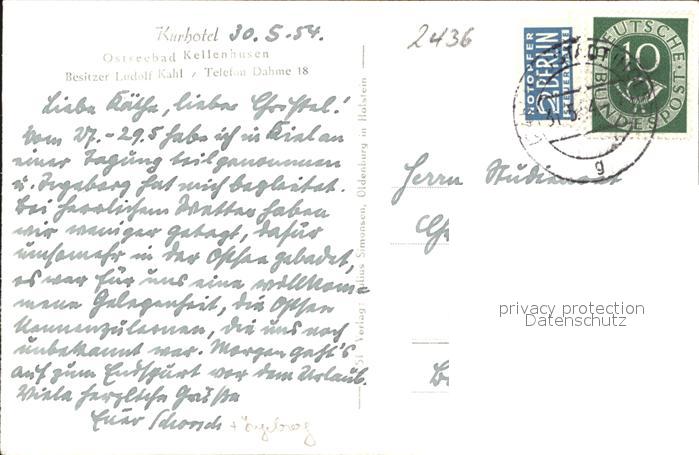 Kurhotel 30.5.54.
Ostseebad Kellenhusen
Besitzer Ludolf Kahl / Telefon Dahme 18
Liebe Käthe, lieber Christel!
Vom 27.-29.5 habe ich in Kiel an
einer Tagung teilgenommen
u. Ingeborg hat mich begleitet.
Bei herrlichem Wetter haben
wir weniger getagt, dafür
umsomehr in der Ostsee gebadet,
es war für uns eine willkom-
mene Gelegenheit, die Ostsee
kennenzulernen, die uns noch
unbekannt war. Morgen geht's
auf zum Endspurt vor dem Urlaub.
Viele herzliche Grüße
Euer Schorsch + Ingeborg
Verlag: Julius Simonsen, Oldenburg in Holstein
2436
NOTOPFER
2 BERLIN
STEUERMARKE
DEUTSCHE
10
BUNDESPOST
g
Herrn
privacy protection
Datenschutz